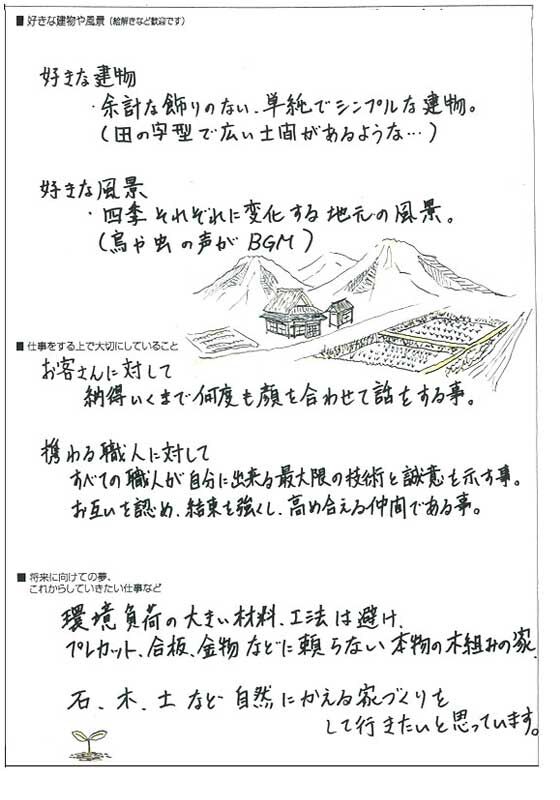 ■ 好きな建物や風景（絵解きなど歓迎です）
好きな建物
・余計な飾りのない、単純でシンプルな建物。
（田の字型で広い土間があるような…）
好きな風景
・四季それぞれに変化する地元の風景。
（鳥や虫の声がBGM）
■ 仕事をする上で大切にしていること
お客さんに対して
納得いくまで何度も顔を合わせて話をする事。
携わる職人に対して
すべての職人が自分に出来る最大限の技術と誠意を示す事。
お互いを認め、結束を強くし、高め合える仲間である事。
■ 将来に向けての夢、
これからしていきたい仕事など
環境負荷の大きい材料、工法は避け、
プレカット、合板、金物などに頼らない本物の木組みの家、
石、木、土など自然にかえる家づくりを
して行きたいと思っています。